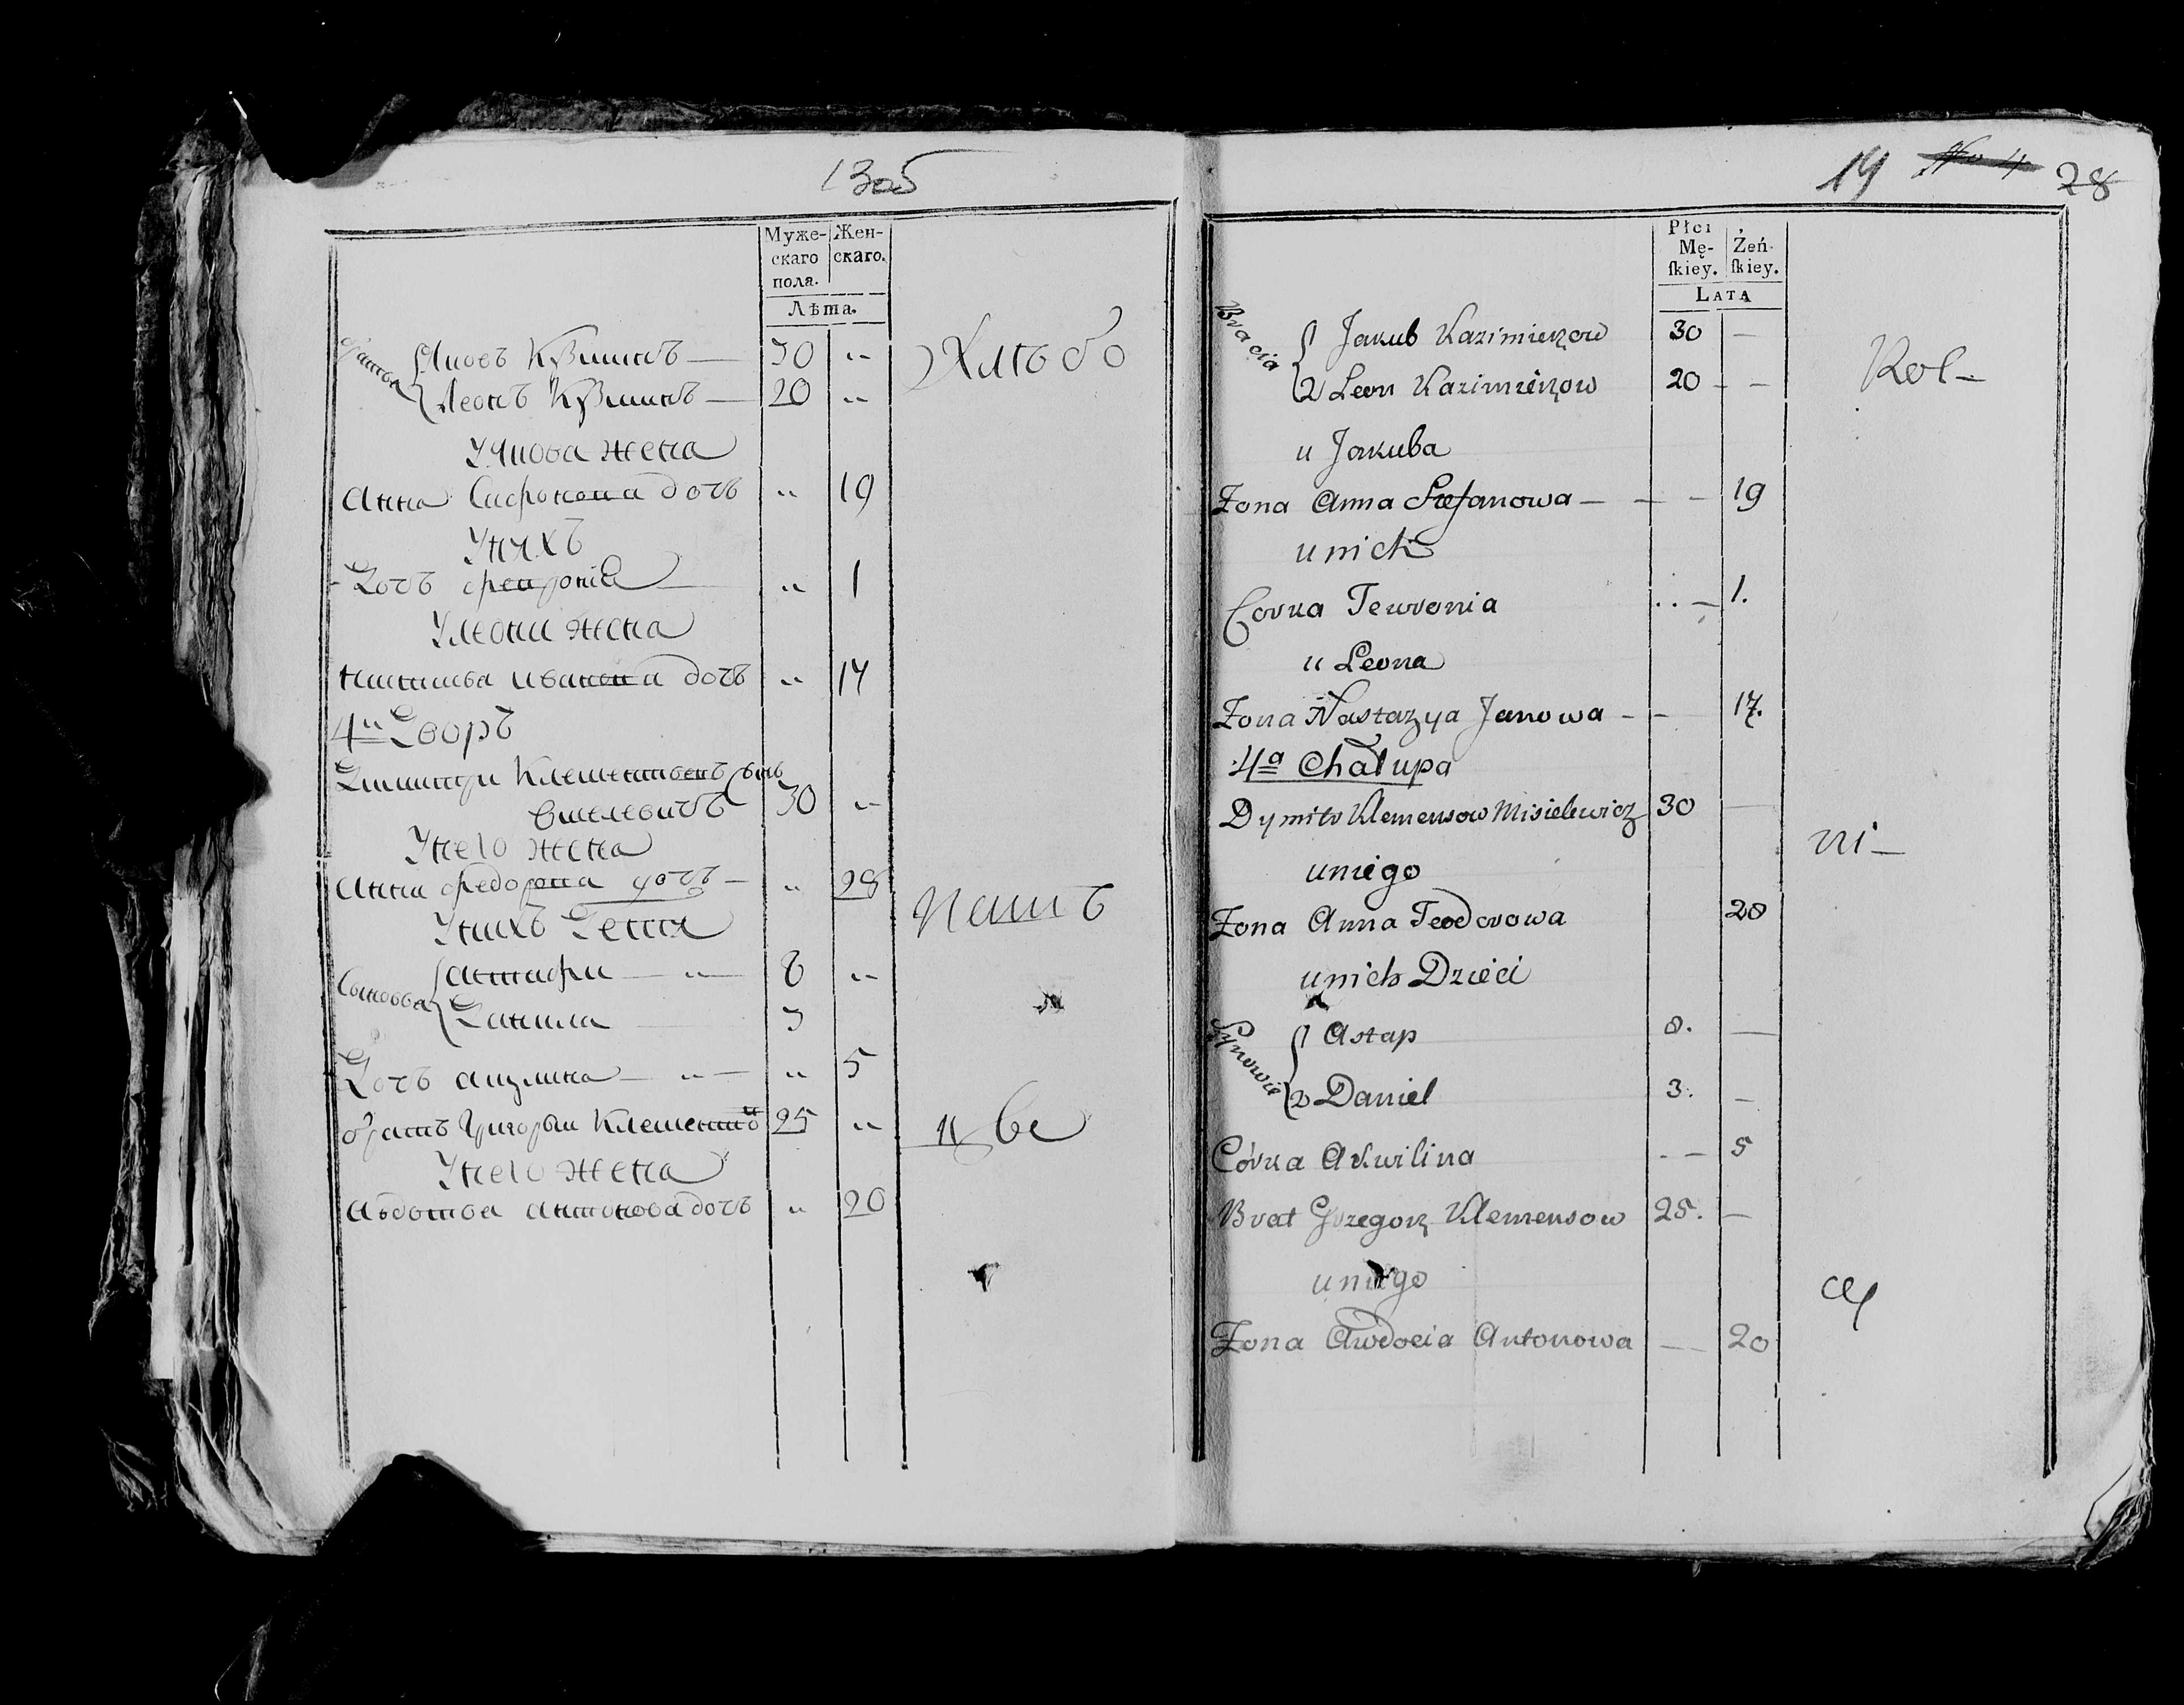 13об
Муже-
скаго
пола.
Жен-
скаго.
Лѣта.
Яковъ 30 „
Леонъ 20 „
Хлѣбо
У Якова жена
Анна дочь „ 19
У нихъ
Дочь „ 1
У Леона жена
Настасья Иванова дочь „ 17
4й Дворъ
Дмитри Клементьевъ сынъ
30 „
У него жена
Анна Федорова дочь „ 28
У нихъ Дети
Пашъ
Сыновья
Астафи „ 8 „
Данила 3
Дочь Акулина „ „ 5
братъ Григорьи 25 „
це
У него жена
Авдотья Антонова дочь „ 20
14 28
Płci
Mę-
ſkiey.
Żeń-
ſkiey.
LATA
Bracia
1 Jakub Kazimierzow 30 —
2 Leon Kazimierzow 20 — —
Rol-
u Jakuba
Zona Anna Stefanowa — — — 19
u nich
Corka Tewronia 1.
u Leona
Zona Nastazya Janowa - — 17.
4a Chałupa
Dymitr Klemensow Misielewicz 30 —
ni-
u niego
Zona Anna Teodorowa 28
u nich Dzieci
Synowie
1 Astap 8. —
2 Daniel 3. —
Córka Akwilina - — 5
Brat Grzegorz Klemensow 25. —
u niego
cy
Zona Awdocia Antonowa — 20